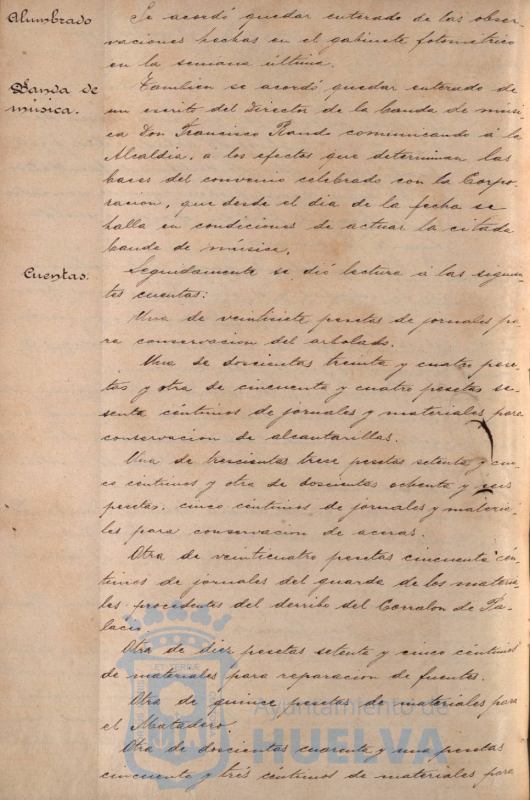 Alumbrado
Se acordó quedar enterado de las obser-
vaciones hechas en el gabinete fotométrico
en la semana última.
Banda de
música.
Tambien se acordó quedar enterado de
un escrito del Director de la banda de músi-
ca Don Francisco comunicando á la
Alcaldia, a los efectos que determinan las
bases del convenio celebrado con la Corpo-
racion, que desde el dia de la fecha se
halla en condiciones de actuar la citada
banda de música.
Cuentas.
Seguidamente se dió lectura á las siguien-
tes cuentas:
Una de veintisiete pesetas de jornales pa-
ra conservacion del arbolado.
Una de doscientas treinta y cuatro pese-
tas y otra de cincuenta y cuatro pesetas se-
senta céntimos de jornales y materiales para
conservacion de alcantarillas.
Una de trescientas trece pesetas setenta y cin-
co céntimos y otra de doscientas ochenta y seis
pesetas, cinco céntimos de jornales y materia-
les para conservacion de aceras.
Otra de veinticuatro pesetas cincuenta cén-
timos de jornales del guarda de los materia-
les procedentes del derribo del Corralon de Pa-
lacio.
Otra de diez pesetas setenta y cinco céntimos
de materiales para reparacion de fuentes.
Otra de quince pesetas de materiales para
el Matadero.
Otra de doscientas cuarenta y una pesetas
cincuenta y trés céntimos de materiales para
Ayuntamiento de
HUELVA